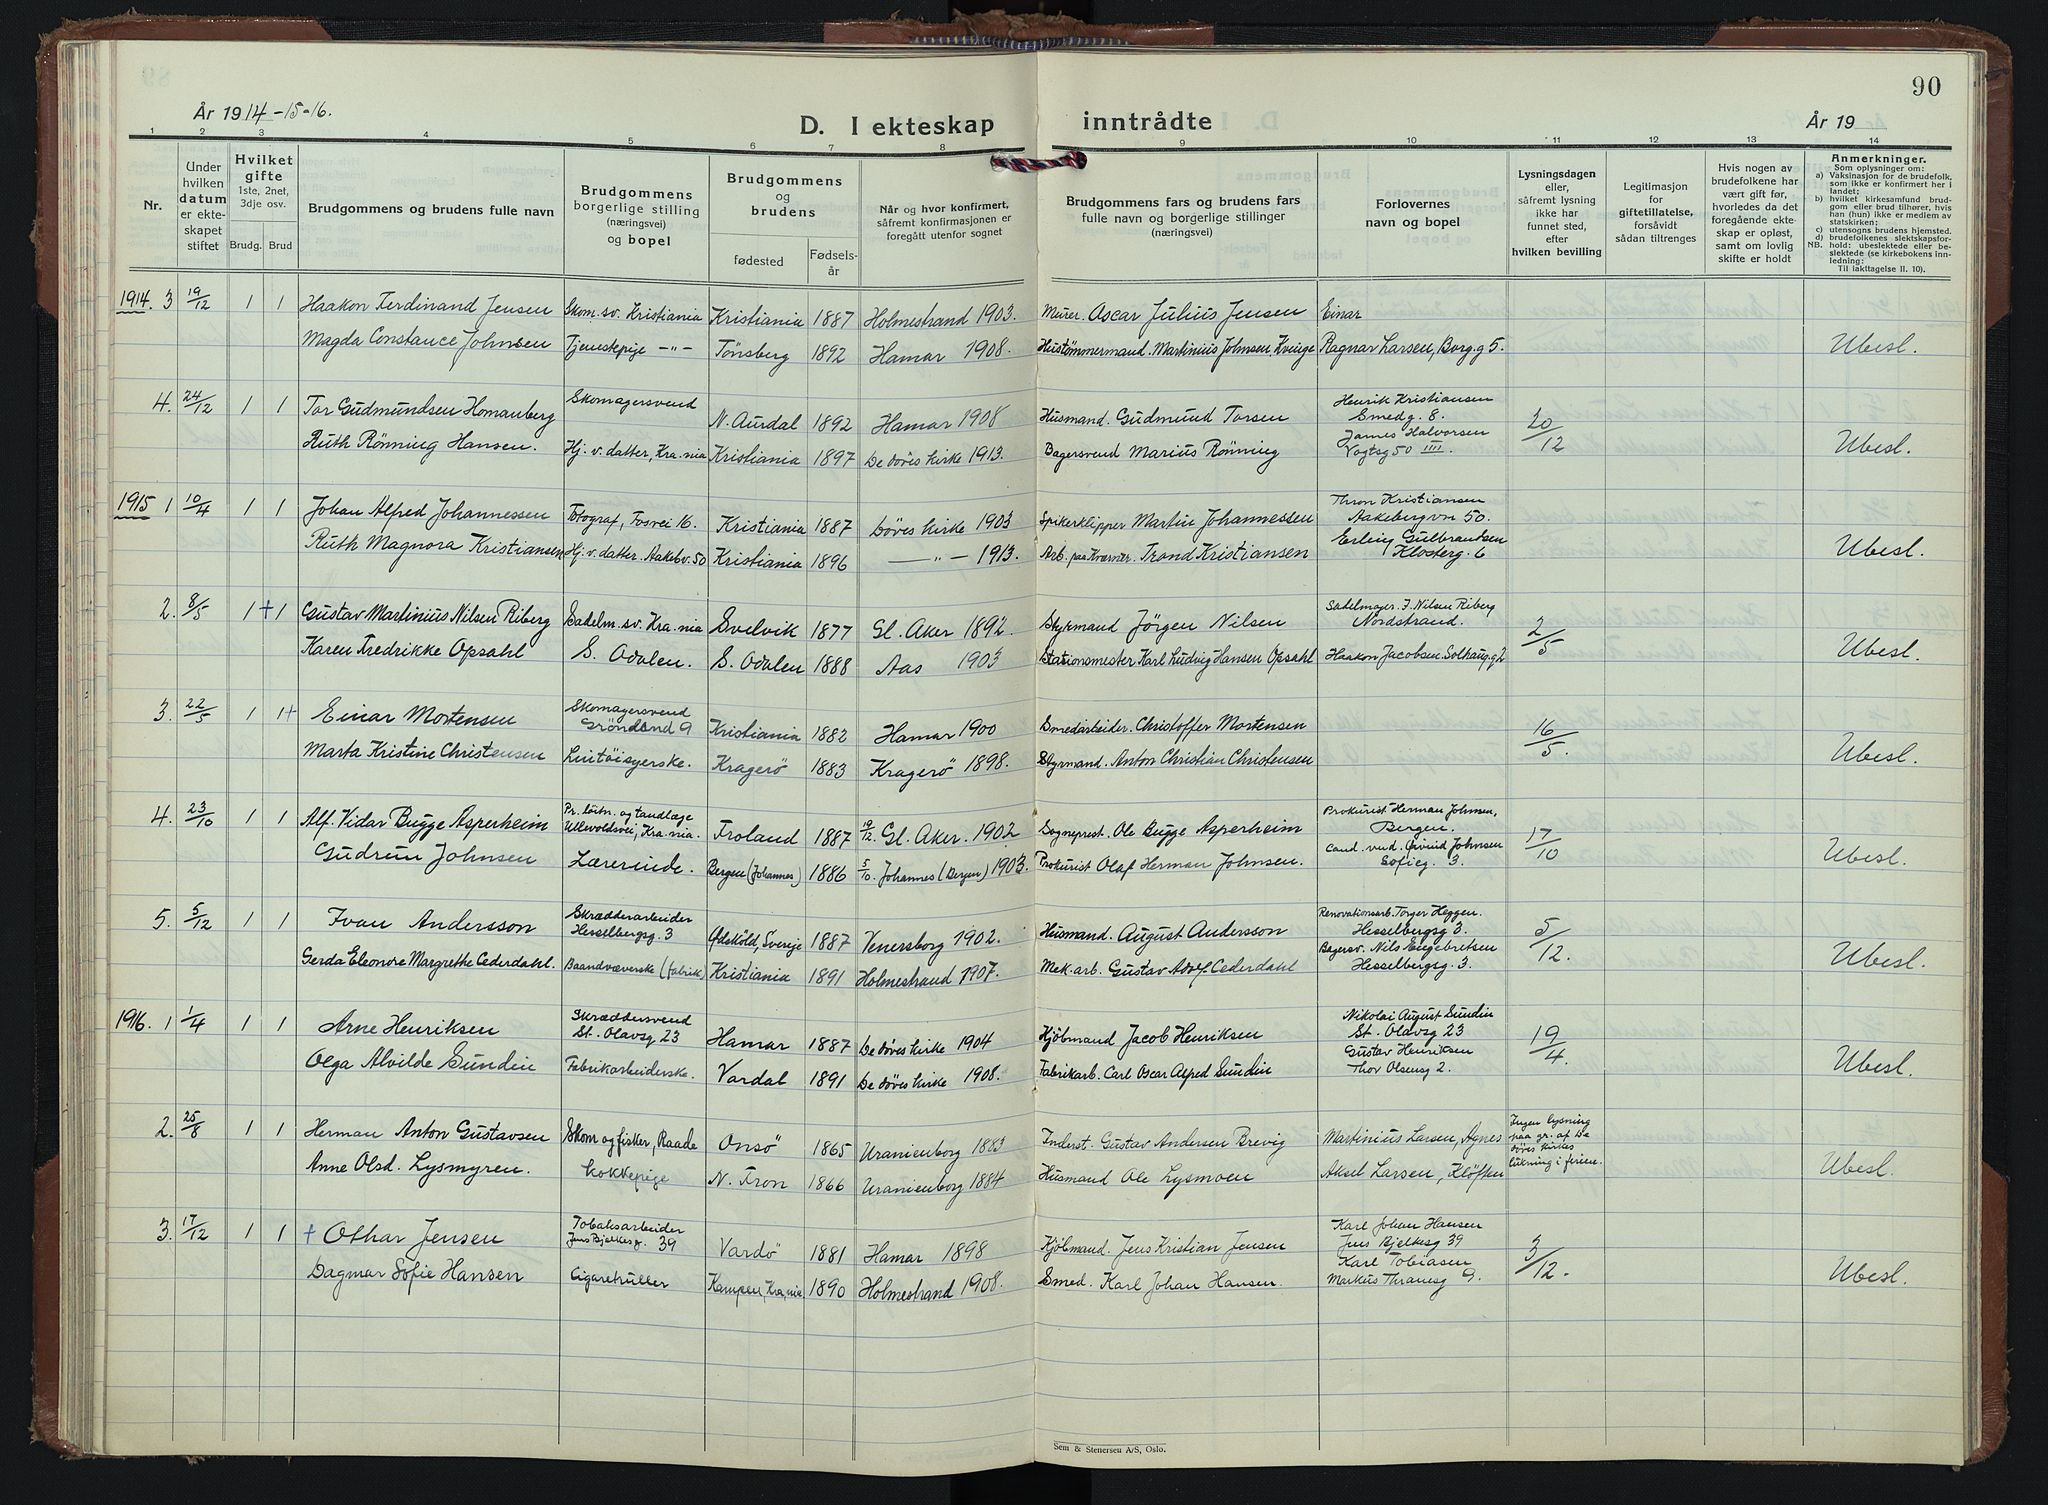 År 1914-15-16.
D. I ekteskap inntrådte
År 19
90
1 2 3 4 5 6 7 8 9 10 11 12 13 14
Nr.
Under hvilken datum er ekteskapet stiftet
Hvilket gifte 1ste, 2net, 3dje osv.
Brudg. Brud
Brudgommens og brudens fulle navn
Brudgommens borgerlige stilling (næringsvei) og bopel
Brudgommens og brudens
fødested
Fødselsår
Når og hvor konfirmert, såfremt konfirmasjonen er foregått utenfor sognet
Brudgommens fars og brudens fars fulle navn og borgerlige stillinger (næringsvei)
Forlovernes navn og bopel
Lysningsdagen eller, såfremt lysning ikke har funnet sted, efter hvilken bevilling
Legitimasjon for giftetillatelse, forsåvidt sådan tiltrenges
Hvis nogen av brudefolkene har vært gift før, hvorledes da det foregående ekteskap er opløst, samt om lovlig skifte er holdt
Anmerkninger.
Som oplysninger om:
a) Vaksinasjon for de brudefolk, som ikke er konfirmert her i landet;
b) hvilket kirkesamfund brudgom eller brud tilhører, hvis han (hun) ikke er medlem av statskirken;
c) utensogns brudens hjemsted.
d) brudefolkenes slektskapsforhold: ubeslektede eller beslektede (se kirkebokens innledning:
NB. Til iakttagelse II. 10).
1914. 3 19/12 1 1 Haakon Ferdinand Jensen Skom.sv. Kristiania Kristiania 1887 Holmestrand 1903. Murer. Oscar Julius Jensen Einar
Magda Constance Johnsen Tjenestepige -"- Tønsberg 1892 Hamar 1908. Hustømmermand. Martinius Johnsen, Kvinge Ragnar Larsen, Borg.g 5. Ubesl.
4. 24/12 1 1 Tor Gudmundsen Homanberg Skomagersvend N. Aurdal 1892 Hamar 1908 Husmand. Gudmund Torsen Henrik Kristiansen Smedg. 8. 20/12
Ruth Rønning Hansen. Hj. v. datter, Kra.nia Kristiania 1897 De døves kirke 1913. Bagersvend Marius Rønning James Halvorsen Vogtsg 50 III. Ubesl.
1915 1 10/4 1 1 Johan Alfred Johannessen Fotograf, Fosvei 16. Kristiania 1887 Døves kirke 1903 Spikerklipper Martin Johannessen Thron Kristiansen Aakebergvn 50.
Ruth Magnora Kristiansen Hj. v. datter. Aakebv. 50 Kristiania 1896 -"- 1913. Arb. paa Kværner. Trond Kristiansen Erling Gulbrandsen Klosterg. 6 Ubesl.
2. 8/5 1 + 1 Gustav Martinius Nilsen Riberg Sadelm. sv. Kra.nia Svelvik 1877 Gl. Aker 1892. Styrmand Jörgen Nilsen Sadelmager. J. Nilsen Riberg Nordstrand. 2/5
Karen Fredrikke Opsahl S. Odalen. S. Odalen 1888 Aas 1903 Stationsmester Karl Ludvig Hansen Opsahl Haakon Jacobsen. Solhaug.g 2 Ubesl.
3. 22/5 1 1+ Einar Mortensen Skomagersvend Grönland 9 Kristiania 1882 Hamar 1900 Smedarbeider. Christoffer Mortensen 16/5.
Marta Kristine Christensen Lintöisyerske. Kragerö 1883 Kragerö 1898. Styrmand. Anton Christian Christensen Ubesl.
4. 23/10 1 1 Alf. Vidar Bugge Asperheim Pr. löitn. og tandlæge Ullevoldsvei, Kra.nia. Froland 1887 19/12. Gl. Aker. 1902 Sogneprest. Ole Bugge Asperheim Prokurist Herman Johnsen, Bergen. 17/10
Gudrun Johnsen Lærerinde. Bergen (Johannes) 1886 5/10. Johannes (Bergen) 1903. Prokurist Olaf Herman Johnsen. cand. Øivind Johnsen Sofieg. 3. Ubesl.
5. 5/12 1 1 Ivan Andersson Skrædderarbeider Hesselbergsg. 3 Ødsköld, Sverige 1887 Venersborg 1902. Husmand. August Andersson Renovationsarb. Torger Heggen. Hesselbergsg 3 5/12.
Gerda Eleonore Margrethe Cederdahl. Baandvæverske (fabrik) Kristiania 1891 Holmestrand 1907. Mek. arb. Gustav Adolf Cederdahl Bagersv. Nils Engebretsen Hesselbergsg. 3. Ubesl.
1916. 1 1/4 1 1 Arne Henriksen Skræddersvend St. Olavsg 23 Hamar 1887 De döves kirke 1904 Kjöbmand Jacob Henriksen Nikolai August Sundin St. Olavsg 23 19/4
Olga Alvilde Sundin Fabrikarbeiderske. Vardal 1891 De döves kirke 1908. Fabrikarb. Carl Oscar Alfred Sundin Gustav Henriksen Thor Olsensg 2. Ubesl.
2. 25/8 1 1 Herman Anton Gustavsen Skom og fisker, Raade Onsö 1865 Uranienborg 1883 Inderst. Gustav Andersen Brevig Martinius Larsen, Agnes Ingen lysning paa gr. af De döves kirkes lukning i ferien.
Anne Olsd. Lysmyren. Kokkepige N. Fron 1866 Uranienborg 1884 Husmand Ole Lysmoen Aksel Larsen, Klöften Ubesl.
3. 17/12 1 1 + Othar Jensen Tobaksarbeider Jens Bjelkesg. 39 Vardö 1881 Hamar 1898 Kjöbmand. Jens Kristian Jensen Karl Johan Hansen Jens Bjelkesg 39 3/12.
Dagmar Sofie Hansen Cigaretruller Kampen, Kra.nia 1890 Holmestrand 1908. Smed. Karl Johan Hansen. Karl Tobiasen Markus Thranesg 9. Ubesl.
Sem & Stenersen A/S, Oslo.